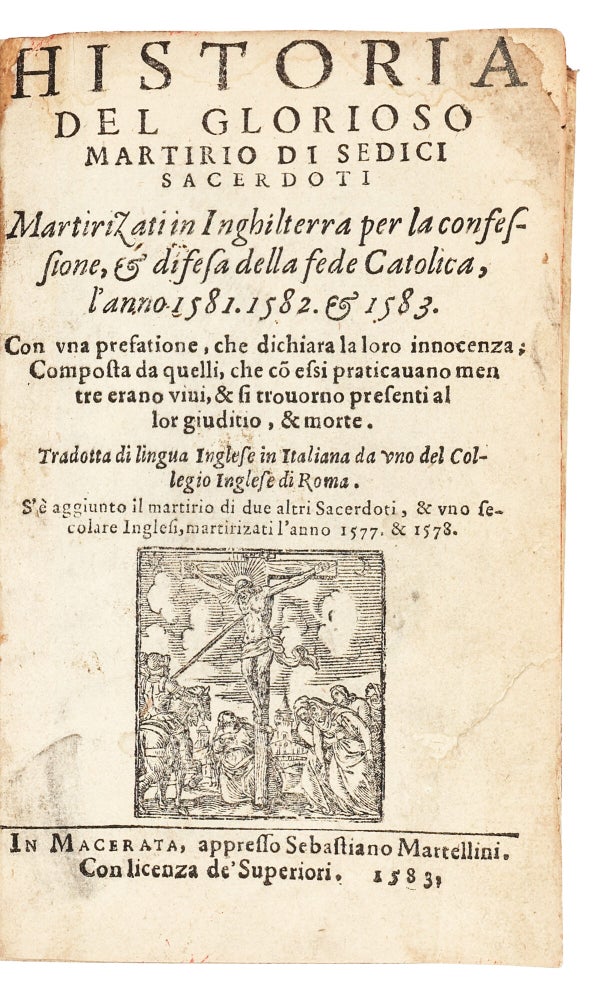 HISTORIA
DEL GLORIOSO
MARTIRIO DI SEDICI
SACERDOTI
Martirizati in Inghilterra per la confeſ-
ſione, & difeſa della fede Catolica,
l'anno 1581. 1582. & 1583.
Con vna prefatione, che dichiara la loro innocenza;
Compoſta da quelli, che cõ eſsi praticauano men
tre erano viui, & ſi trouorno preſenti al
lor giuditio, & morte.
Tradotta di lingua Ingleſe in Italiana da vno del Col-
legio Ingleſe di Roma.
S'è aggiunto il martirio di due altri Sacerdoti, & vno ſe-
colare Ingleſi, martirizati l'anno 1577. & 1578.
IN MACERATA, appreſſo Sebaſtiano Martellini.
Con licenza de' Superiori. 1583,